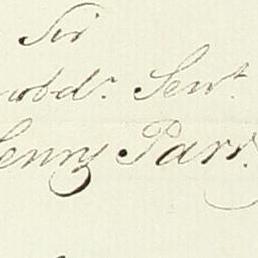 Sir
obdt. Servt.
Henry Parr.